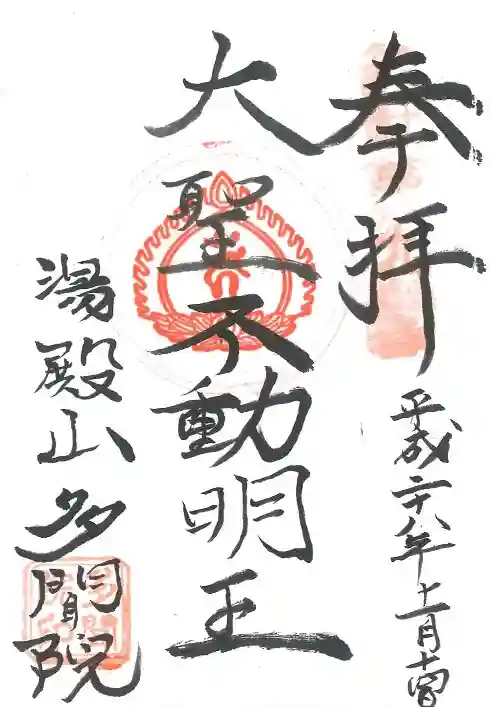 奉拝
平成二十八年十一月十四日
大聖不動明王
湯殿山多聞院